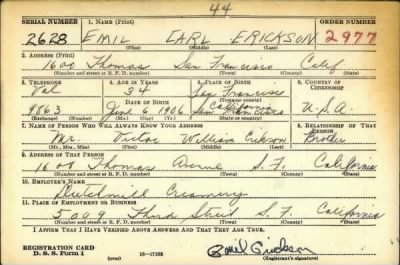 44
SERIAL NUMBER 1. NAME (Print) ORDER NUMBER
2628 EMIL CARL ERICKSON 2977
(First) (Middle) (Last)
2. ADDRESS (Print)
1600 Thomas San Francisco Calif
(Number and street or R. F. D. number) (Town) (County) (State)
3. TELEPHONE 4. AGE IN YEARS 5. PLACE OF BIRTH 6. COUNTRY OF CITIZENSHIP
Val 34 San Francisco
DATE OF BIRTH California
9863 6 1906 U.S.A.
(Exchange) (Number) (Mo.) (Day) (Yr.) (State or country)
7. NAME OF PERSON WHO WILL ALWAYS KNOW YOUR ADDRESS 8. RELATIONSHIP OF THAT PERSON
Mr. Victor William Erikson Brother
(Mr., Mrs., Miss) (First) (Middle) (Last)
9. ADDRESS OF THAT PERSON
1600 Thomas Avenue S.F. California
(Number and street or R. F. D. number) (Town) (County) (State)
10. EMPLOYER'S NAME
Dutchmill Creamery
11. PLACE OF EMPLOYMENT OR BUSINESS
5009 Third Street S.F. California
(Number and street or R. F. D. number) (Town) (County) (State)
I AFFIRM THAT I HAVE VERIFIED ABOVE ANSWERS AND THAT THEY ARE TRUE.
REGISTRATION CARD
D. S. S. Form 1 (over) 16-17105 (Registrant's signature)